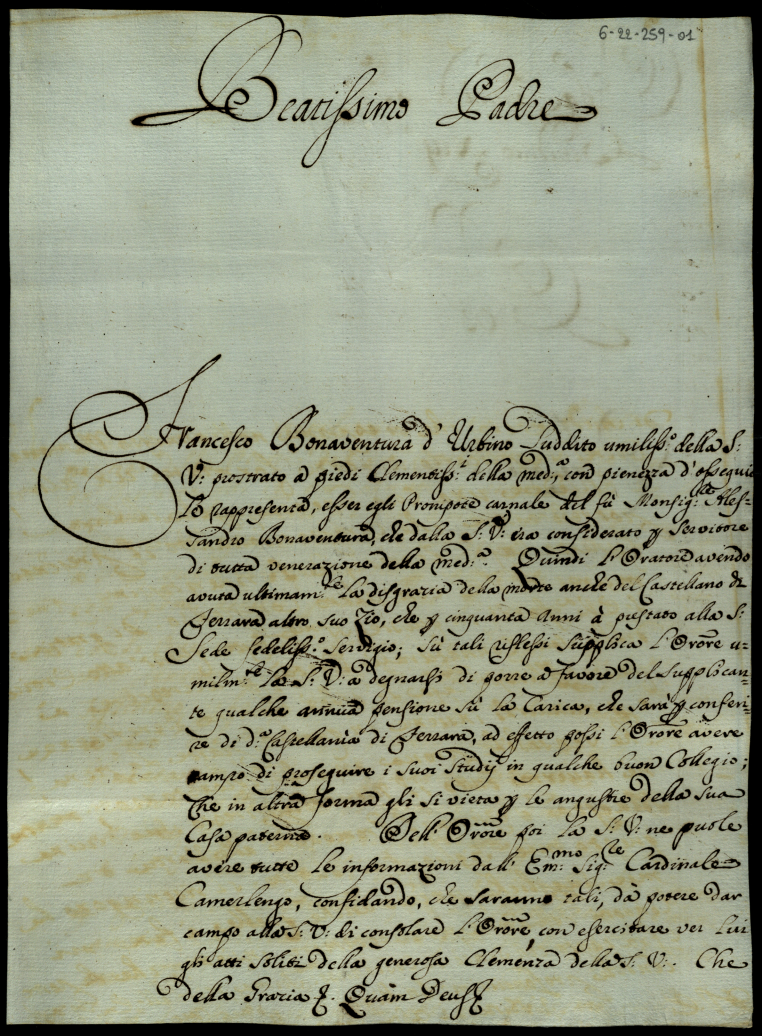 6-22-259-01
Beatissimo Padre
Francesco Bonaventura d'Urbino Suddito umiliss:o della S:
V: prostrato a piedi Clementiss:i della med:a, con pienezza d'ossequio
Le rappresenta, esser egli Pronipote carnale del fù Monsig:r Ales-
sandro Bonaventura, che dalla S: V: era considerato p Servitore
di tutta venerazione della med:a. Quindi l'Oratore avendo
avuta ultimam:te la disgrazia della morte anche del Castellano di
Ferrara altro suo Zio, che p cinquanta anni à prestato alla S:
Sede fedeliss:o servigio; sù tali riflessi supplica l'Orōre u-
milm:te la S: V: a degnarsi di porre a favore del supplican-
te qualche annua pensione sù la Carica, che sarà p conferi-
re di d:a Castellania di Ferrara, ad effetto possi l'Orōre avere
campo di proseguire i suoi studij in qualche buon Collegio;
che in altra forma gli si vieta p le angustie della sua
Casa paterna. Dell'Orōre poi la S: V: ne puole
avere tutte le informazioni dall'Em:mo Sig:re Cardinale
Camerlengo, confidando, che saranno tali, da potere dar
campo alla S: V: di consolare l'Orōre con esercitare ver lui
gli atti soliti della generosa Clemenza della S: V:. Che
della Grazia &. Quam Deus &